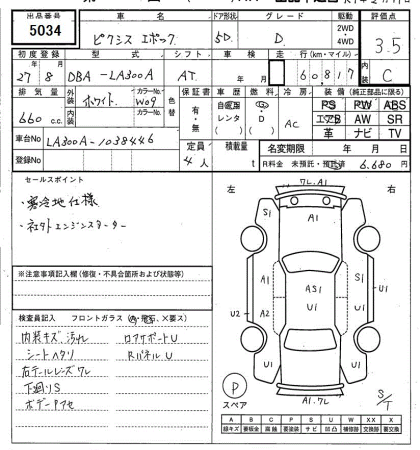 出品番号 車名 ドア形状 グレード 駆動 評価点
5034 ピクシス エポック 5D. D. 2WD ・ 4WD 3.5
初度登録 型式 シフト 車検 走行(km・マイル) 内装
27年8月 DBA-LA300A AT. 年 月 60,817 C
排気量 外装色 カラーNo. 色替 カラーNo. 保証書 車歴 燃料 冷房 装備(純正部品に限る)
660 c.c. ホワイト. W09 有・無 自家用 レンタ G・D AC PS PW ABS
エアB AW SR
革 ナビ TV
車台No LA300A-1038446 定員 積載量 名変期限 年 月 日
登録No 4人 t R料金 未預託・預託済 6,680 円
セールスポイント
・寒冷地仕様
・社外エンジンスターター
※注意事項記入欄(修復・不具合箇所および状態等)
検査員記入 フロントガラス (✕要ス)
内装キズ汚れ ロアサポートU
シートヘタリ RパネルU
右テールレンズワレ
下廻りS
ボデーアセ
左 右
ワレ.A1
S1 A1 S1
A1 AS1 U1
U2 A2 U1 U2
U1 U1
P
スペア
A1.ワレ
S/T
A B C P S U W X XX ✕
線キズ 要板金 腐食 要塗装 サビ 凹凸 補修跡 交換跡 要交換